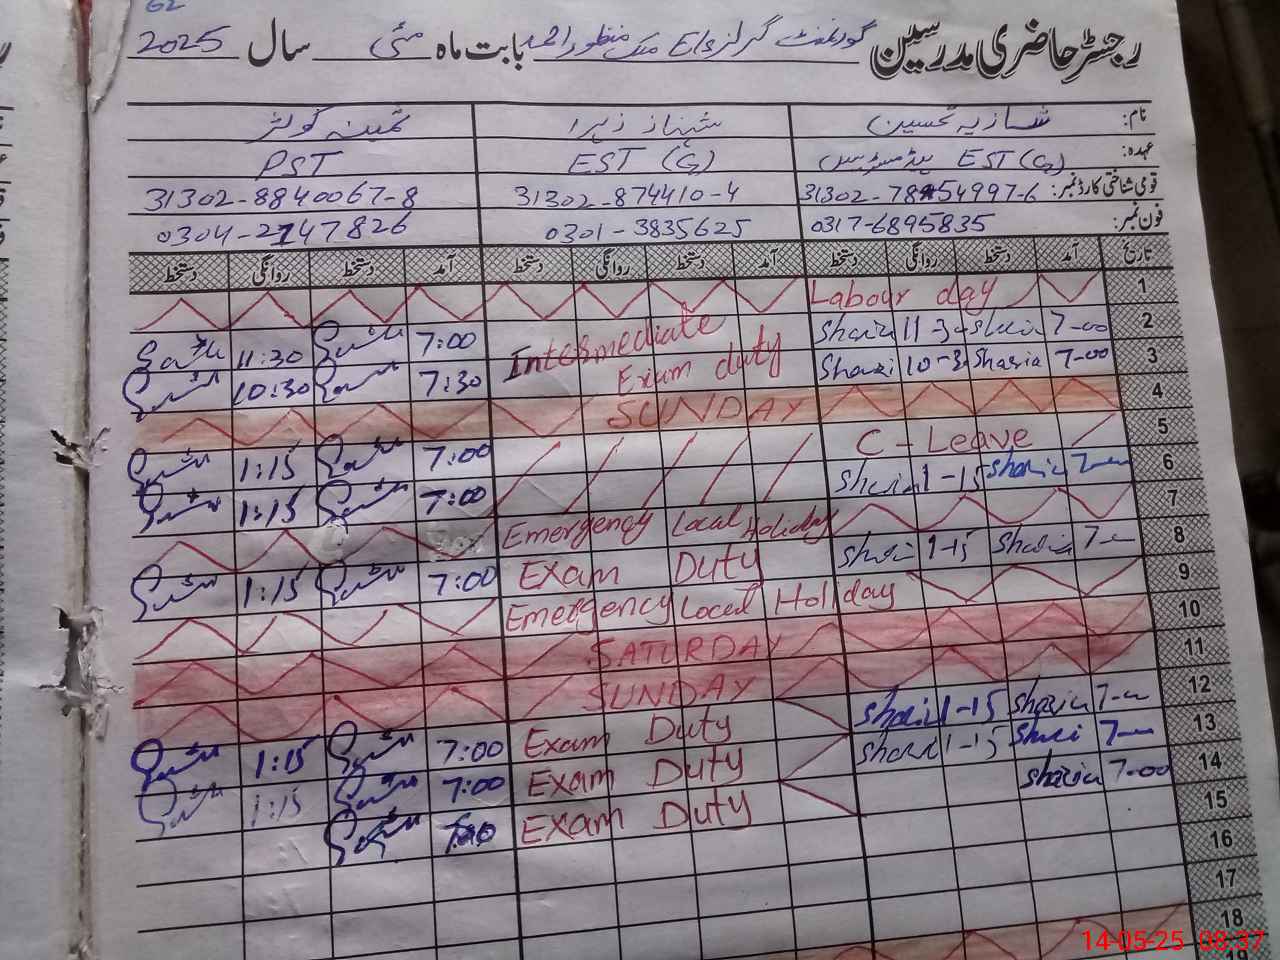 62
رجسٹر حاضری مدرسین گورنمنٹ گرلز E/S منظور احمد بابت ماہ مئی سال 2025
نام: شازیہ تحسین شہناز زہرا ثمینہ کوثر
عہدہ: EST (G) ہیڈمسٹریس EST (G) PST
قومی شناختی کارڈ نمبر: 31302-874410-4 31302-8840067-8
فون نمبر: 0317-6895835 0301-3835625
تاریخ آمد دستخط روانگی دستخط آمد دستخط روانگی دستخط آمد دستخط روانگی دستخط
1 Labour day
2 7-00 Shazia 11-30 Shazia Intermediate 7:00 11:30
3 7-00 Shazia 10-30 Shazia Exam duty 7:30 10:30
4 SUNDAY
5 C-Leave 7:00 1:15
6 7-00 Shazia 1-15 Shazia 7:00 1:15
7 Emergency Local Holiday
8 7-00 Shazia 1-15 Shazia Exam Duty 7:00 1:15
9 Emergency Local Holiday
10 SATURDAY
11 SUNDAY
12 7-00 Shazia 1-15 Shazia Exam Duty 7:00 1:15
13 7-00 Shazia 1-15 Shazia Exam Duty 7:00 1:15
14 7-00 Shazia Exam Duty
15
16
17
18
19
14-05-25 08:37